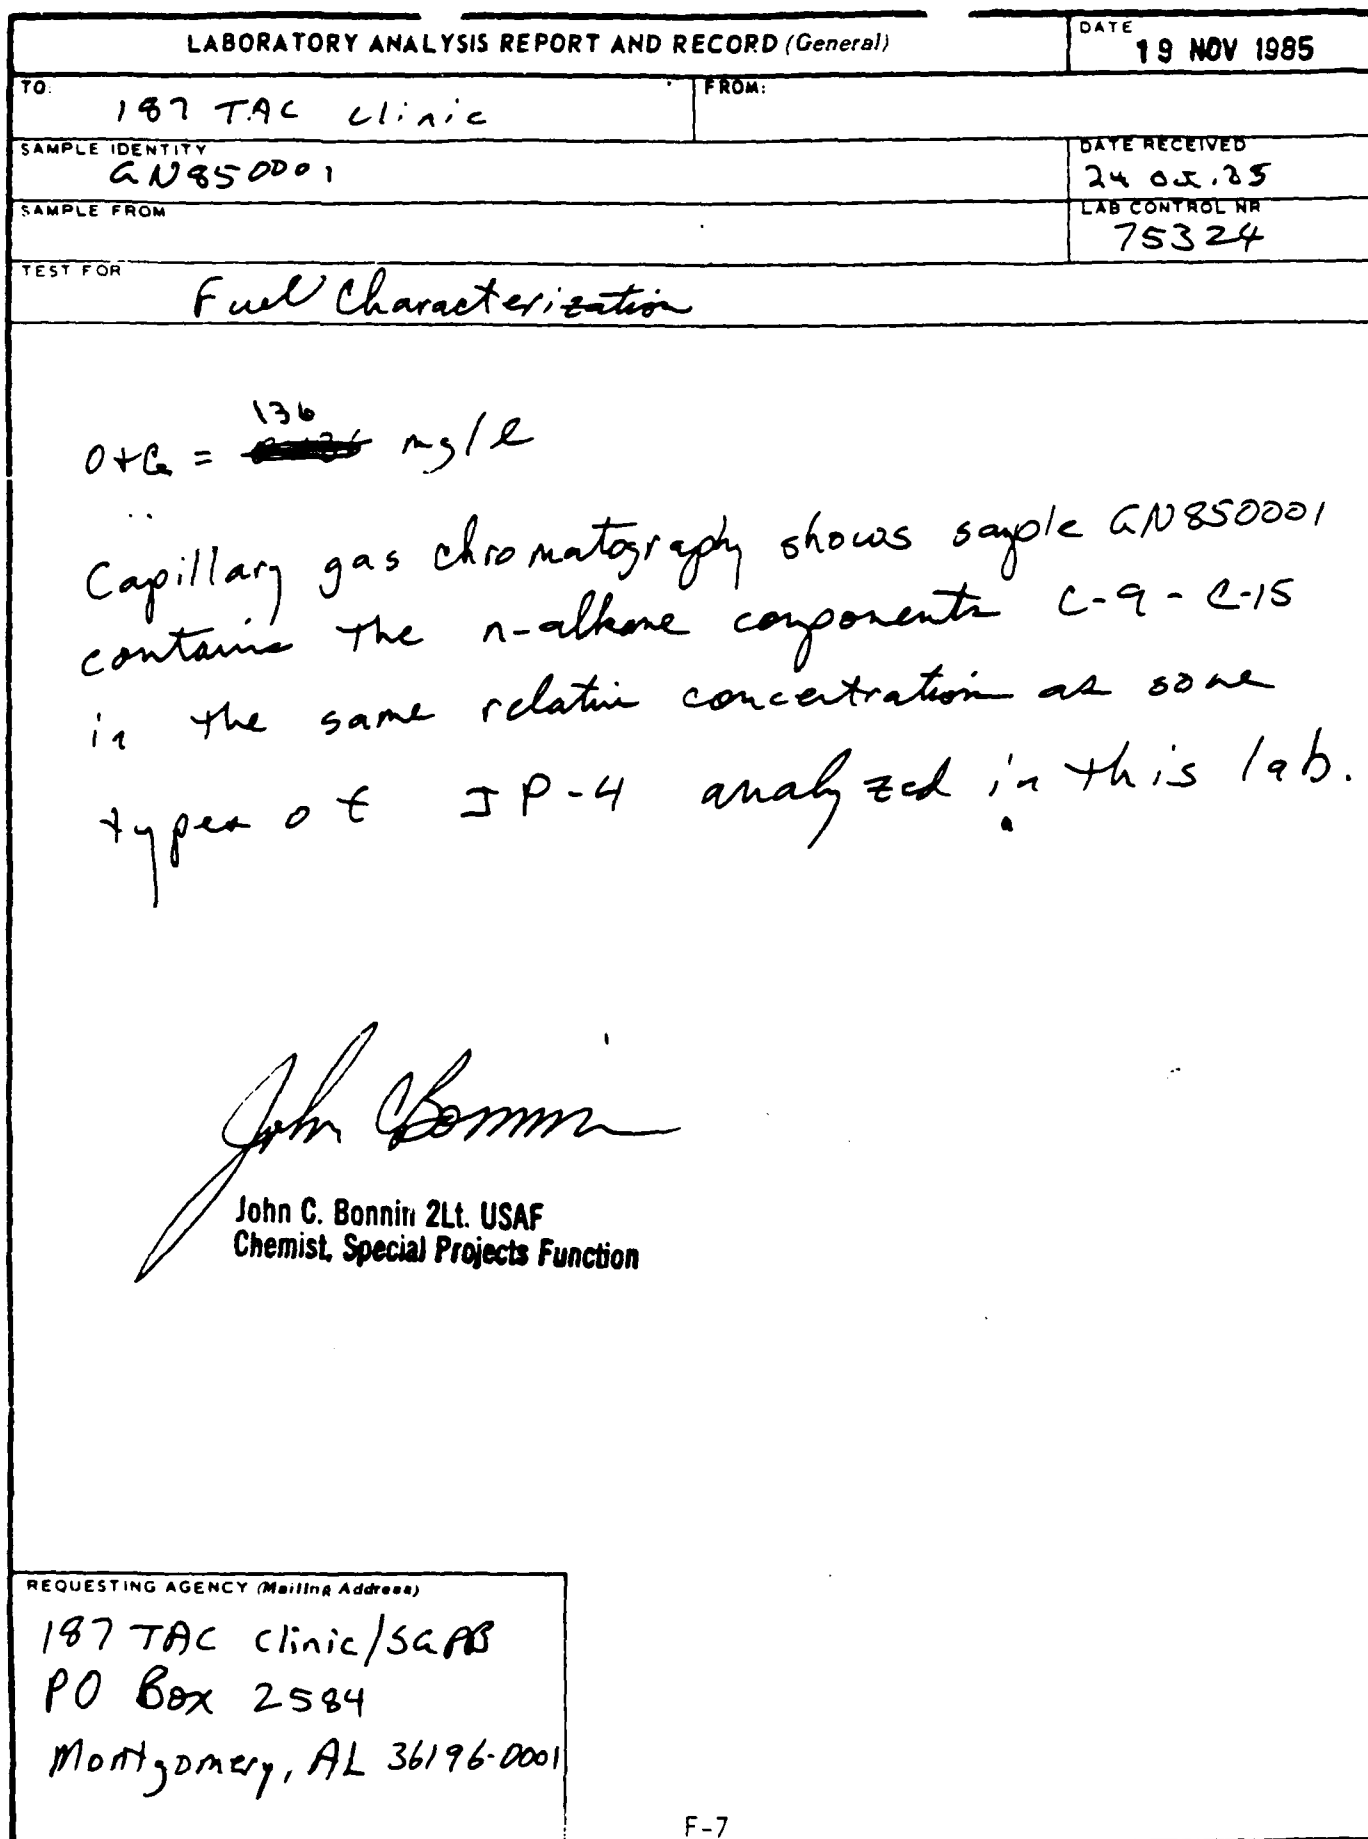 LABORATORY ANALYSIS REPORT AND RECORD (General)
DATE
19 NOV 1985
TO:
187 TAC clinic
FROM:
SAMPLE IDENTITY
GN850001
DATE RECEIVED
24 Oct. 85
SAMPLE FROM
LAB CONTROL NR
75324
TEST FOR
Fuel Characterization
136
O+G = mg/l
Capillary gas chromatography shows sample GN850001
contains the n-alkane components C-9 - C-15
in the same relative concentration as some
types of JP-4 analyzed in this lab.
John C Bonnin
John C. Bonnin 2Lt. USAF
Chemist, Special Projects Function
REQUESTING AGENCY (Mailing Address)
187 TAC clinic/SGPB
PO Box 2584
Montgomery, AL 36196-0001
F-7